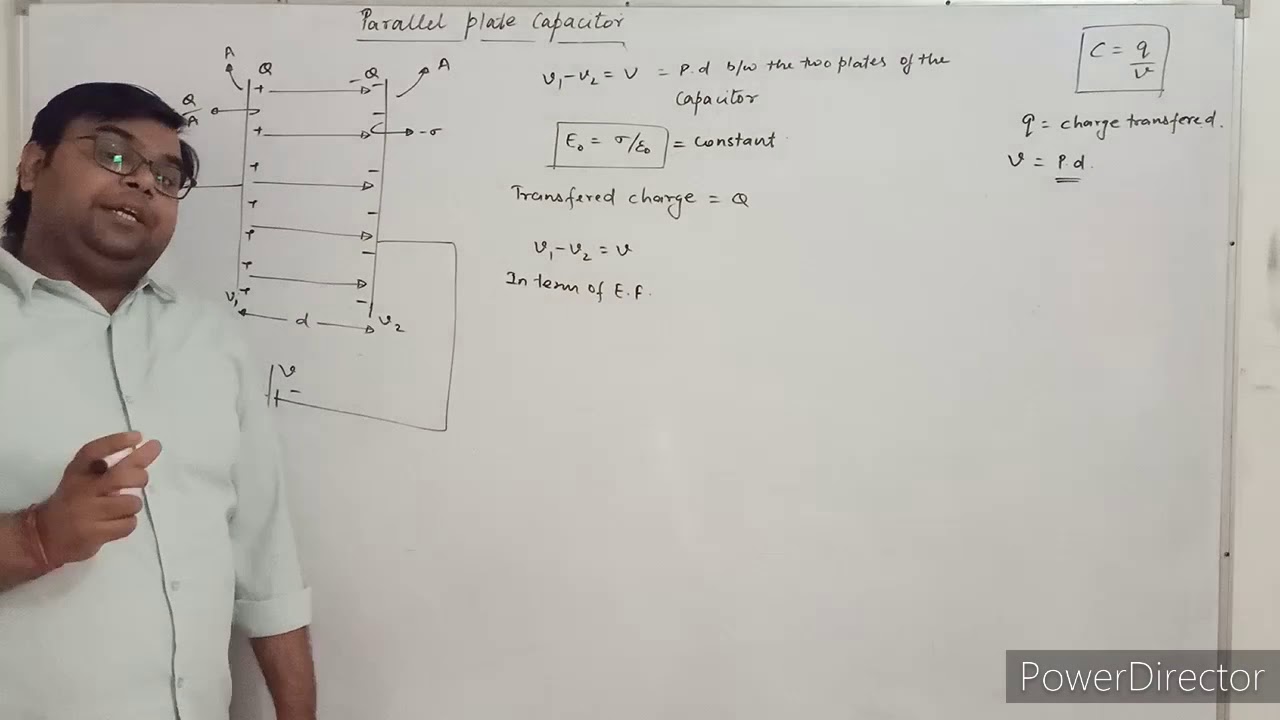 Parallel plate Capacitor
A
Q
-Q
A
Q/A
-σ
V₁
d
V₂
V
+ -
V₁-V₂ = V = P.d b/w the two plates of the
Capacitor
E₀ = σ/ε₀ = Constant
Transfered charge = Q
V₁-V₂ = V
In term of E.F.
C = q/V
q = charge transfered.
V = P.d.
PowerDirector